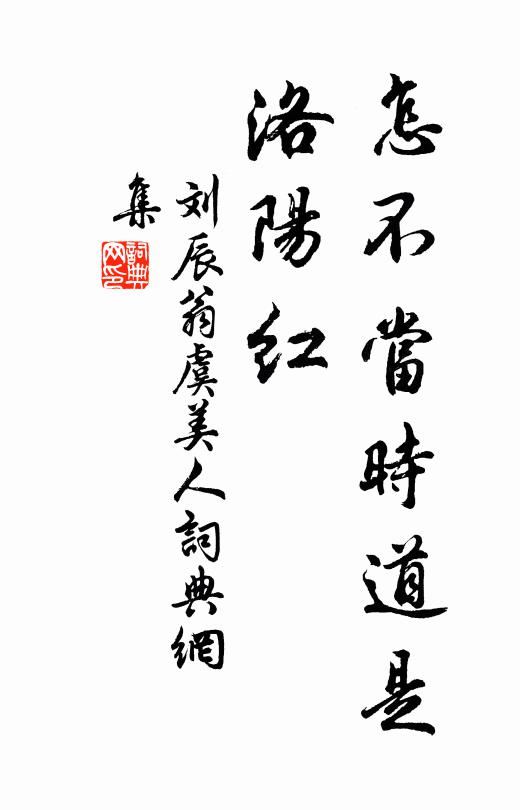 怎不當時道是
洛陽红
刘辰翁虞美人詞典網
集
詞典网印